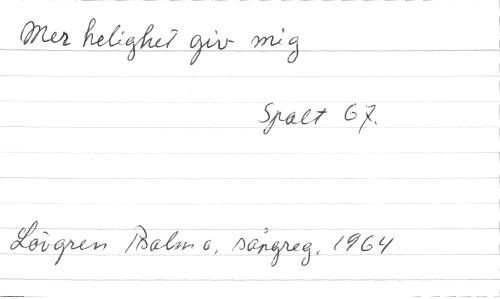 Mer helighet giv mig
Spalt 67.
Lövgren Psalm o. sångreg. 1964